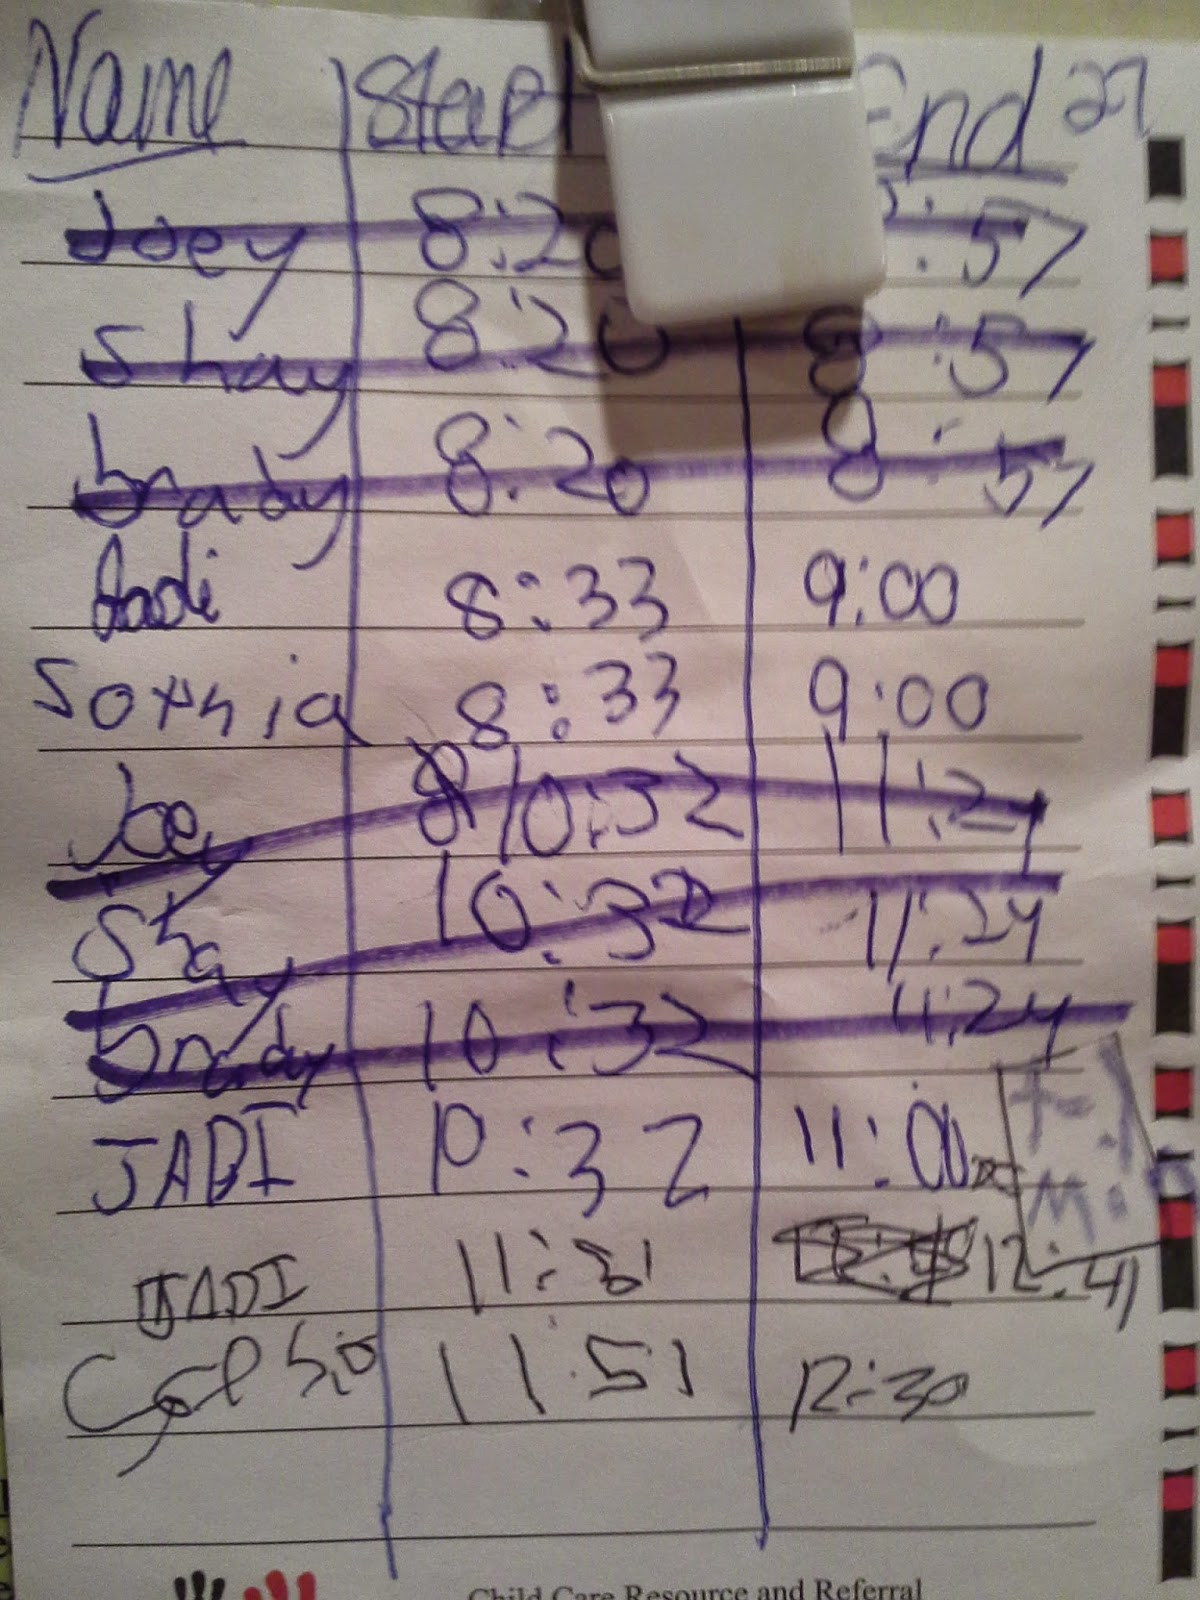 Name Start End 27
Joey 8:20 :57
Shay 8:20 8:57
brady 8:20 8:57
8:33 9:00
8:33 9:00
Joey 10:32 11:24
Shay 10:32 11:24
brady 10:32 11:24
JADI 10:32 11:00
JADI 11:51 12:41
11:51 12:30
Child Care Resource and Referral